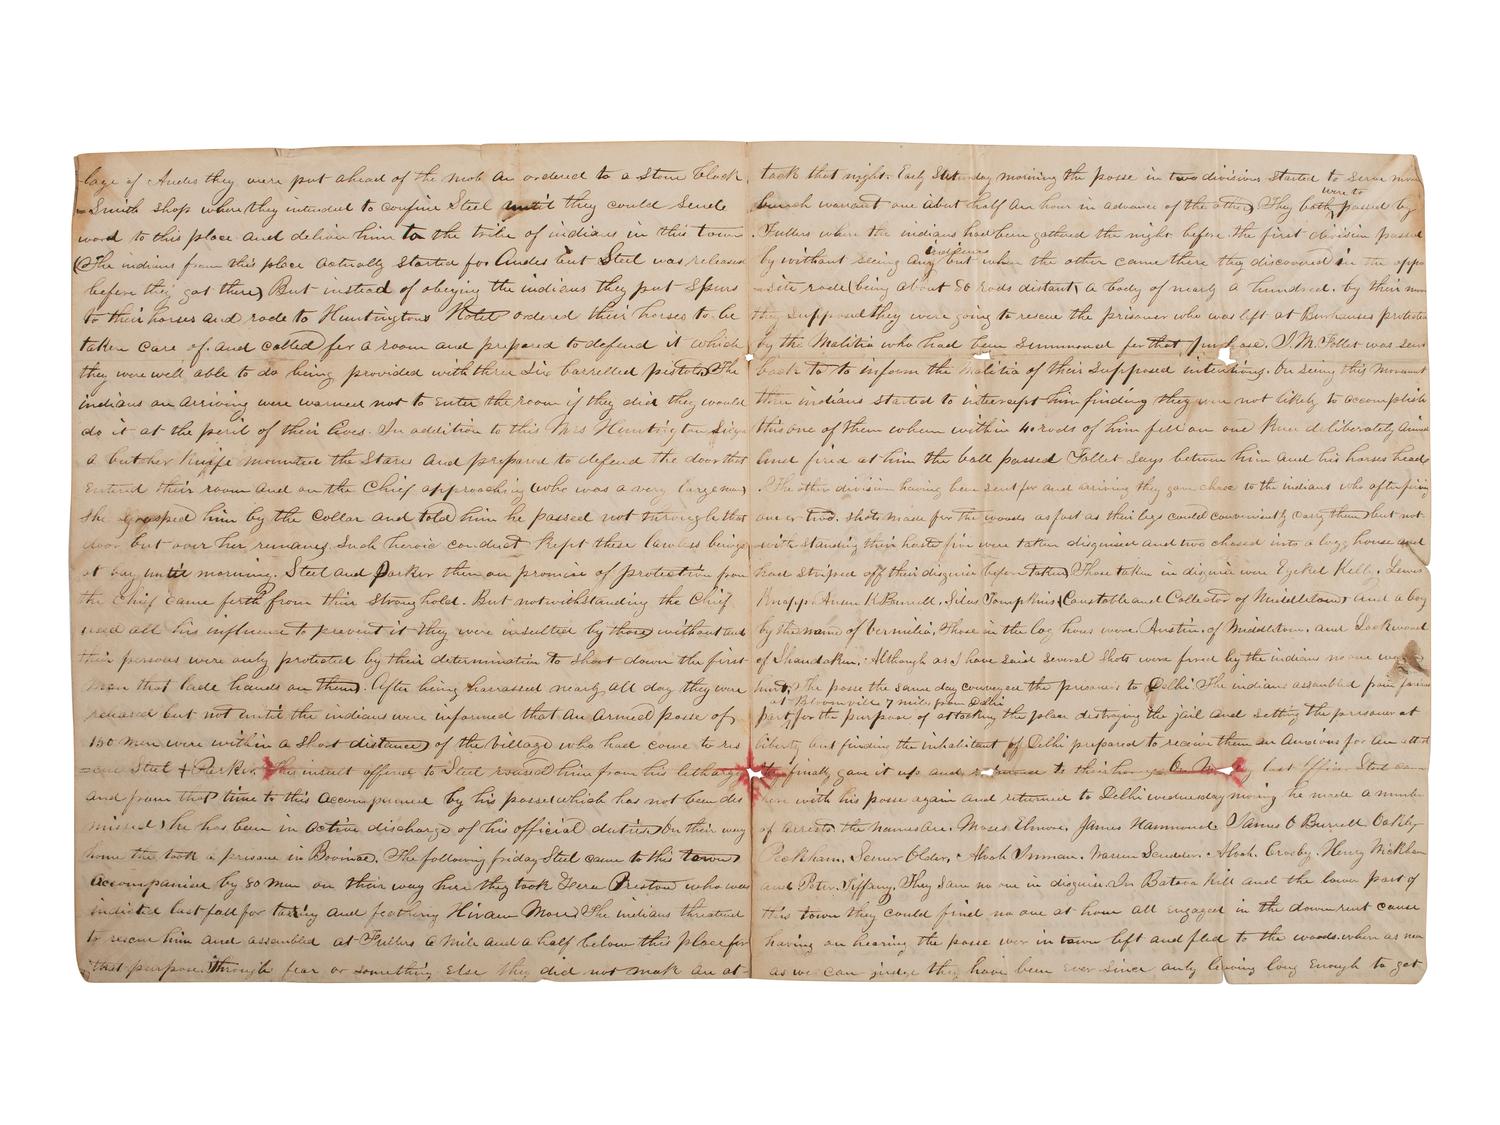 lage of Andes they were put ahead of the mob an ordered to a Stone Black
Smith shop where they intended to confine Steel until they could sende
word to this place and deliver him to the tribe of indians in this town
(The indians from this place actually started for Andes but Steel was released
before they got there) But instead of obeying the indians they put Spurs
to their horses and rode to Huntingtons Hotel ordered their horses to be
taken care of and called for a room and prepared to defend it which
they were well able to do being provided with three Six barrelled pistols The
indians on arriving were warned not to enter the room if they did they would
do it at the peril of their lives. In addition to this Mrs Huntington
a butcher Knife mounted the Stares and prepared to defend the door that
entered their room and on the Chief approaching (who was a very large man)
She grasped him by the Collar and told him he passed not through that
door but over her remains. Such heroic conduct Kept these lawless beings
at bay until morning. Steel and Parker then on promise of protection from
the Chief came forth from their strong hold. But notwithstanding the Chief
used all his influence to prevent it they were insulted by those without and
their persons were only protected by their determination to Shoot down the first
man that lade hands on them. After being harrassed nearly all day they were
released but not until the indians were informed that an armed posse of
150 men were within a short distance of the village who had come to res
=cue Steel & Parker. The insult offered to Steel roused him from his lethargy
and from that time to this accompanied by his posse which has not been dis
missed) he has been in active discharge of his official duties. On their way
home the took a prisoner in Bovina. The following friday Steel came to this town
accompanied by 80 men on their way here they took Preston who was
indicted last fall for tarring and feathering Hiram More. The indians threatned
to rescue him and assembled at Fullers a mile and a half below this place for
that purpose. Through fear or something else they did not make an at-
tack that night. Early day morning the posse in two divisions started to serve
warrant one about half an hour in advance of the other. They both were to passed by
Fullers where the indians had been gathered the night before. The first division passed
by without seeing any indians but when the other came there they discovered in the oppo
=site rode (being about 50 rods distant) a body of nearly a hundred. by their
they supposed they were going to rescue the prisoner who was left at Burhanses protected
by the Malitia who had been Summoned for that purpose. J. M. Follet was sent
back to to inform the Malitia of their Supposed intentions. On seeing this movement
indians started to intercept him finding they were not likely to accomplish
this one of them when within 40 rods of him fell on one Knee deliberately aimed
and fired at him the ball passed Follet Says between him and his horses head
The other division having been sent for and arriving they gave chase to the indians who after firing
one or two. shots made for the woods as fast as their legs could conveniently carry them but not
with standing their haste five were taken disguised and two chased into a logg house and
had striped off their disguise before taken) Those taken in disguise were Ezekel Kelly. Lewis
Knapp. Anson K Burrell. Silas Tompkins (Constable and Collector of Middletown) and a boy
by the name of Vermilia. Those in the log hous were. Austin. of Middletown. and Lockwood
of Shandaken. Although as I have Said several Shots were fired by the indians no one was
hurt. The posse the same day conveyed the prisoners to Delhi The indians assembled from
at Bloomville 7 miles from Delhi
part for the purpose of attacking the place destroying the jail and setting the prisoner at
liberty but finding the inhabitant of Delhi prepared to receive them an Anxious for an
finally gave it up and to their homes On last Officer Steel came
here with his posse again and returned to Delhi wednesday moring he made a number
of arrests the names are. Moses Elmore. James Hammond James O Burrell Oakley
Peckham. Older. Inman. Warren Scudder. Crosby. Henry Wickham
and Peter Tiffany. They Saw no one in disguise. In Batava Kill and the lower part of
this town they could find no one at home all engaged in the down rent cause
having on hearing the posse wer in town left and fled to the woods. when as
as we can judge they have been ever since only leaving long enough to get